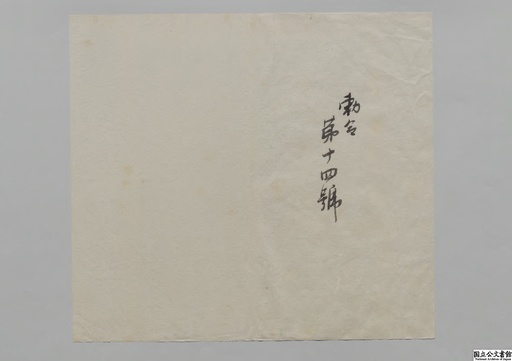 勅令
第十四號
国立公文書館
National Archives of Japan